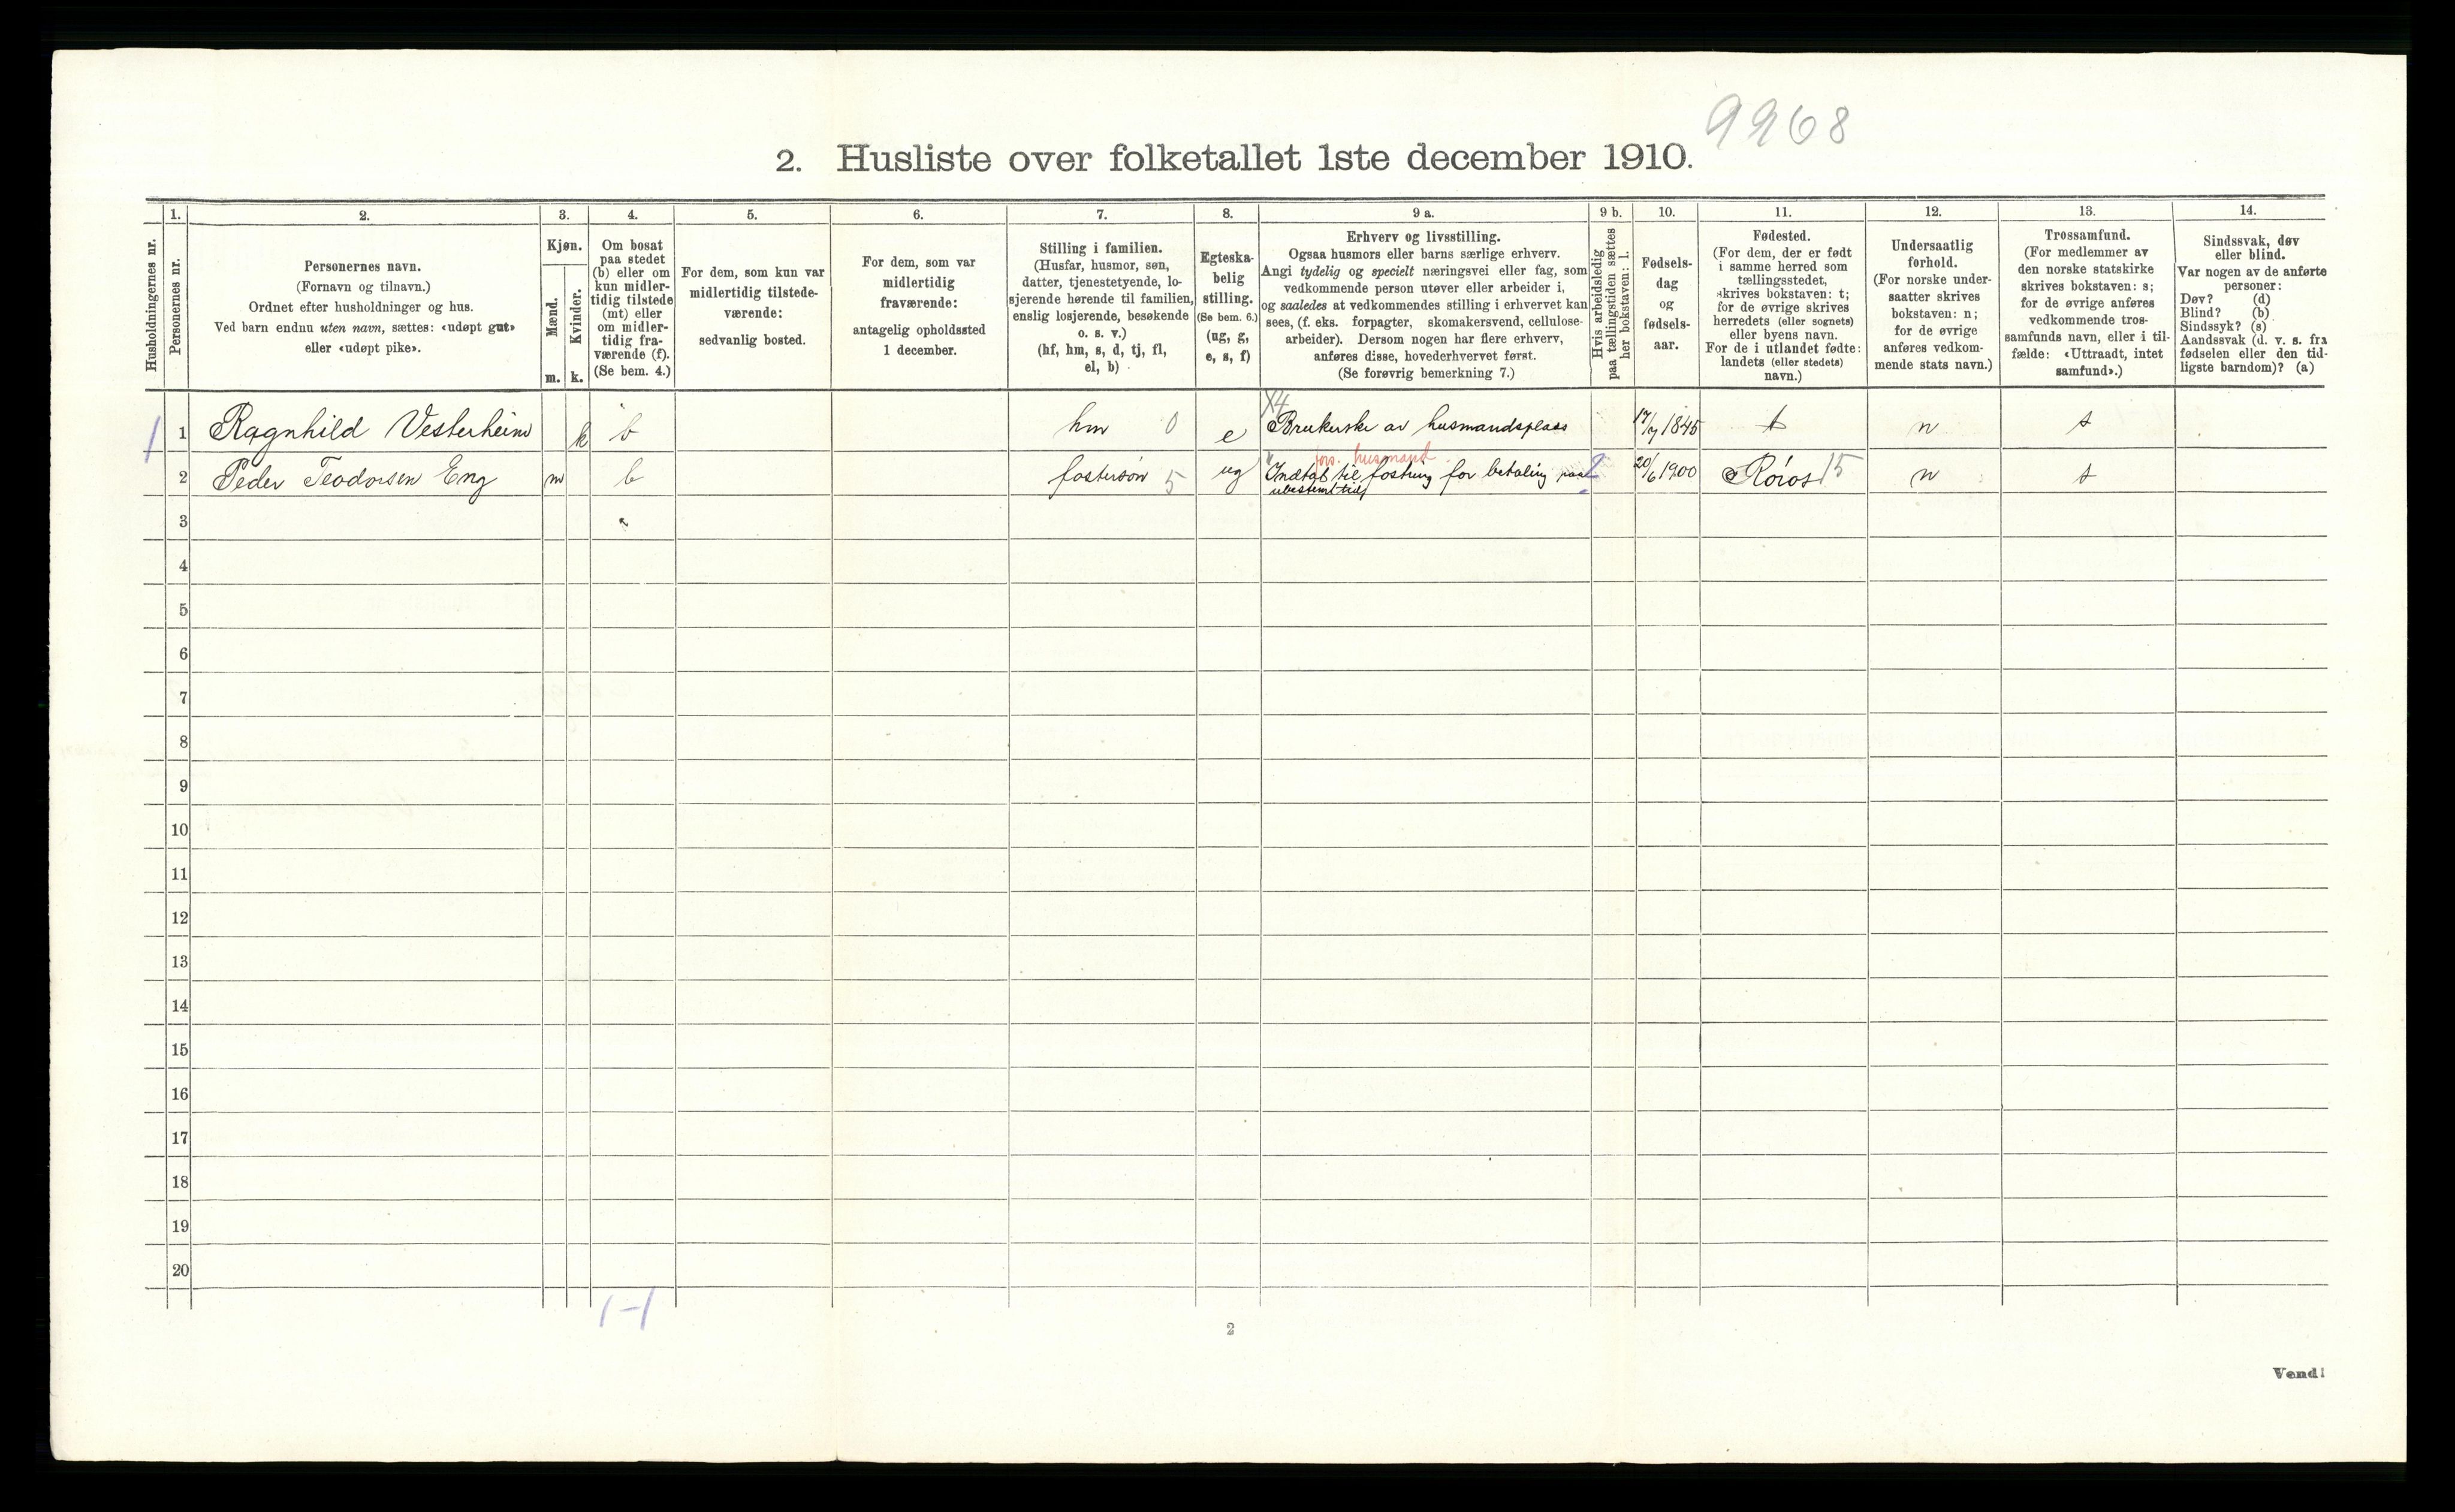 9968
2. Husliste over folketallet 1ste december 1910.
Husholdningernes nr.
1.
Personernes nr.
2.
Personernes navn.
(Fornavn og tilnavn.)
Ordnet efter husholdninger og hus.
Ved barn endnu uten navn, sættes: «udøpt gut»
eller «udøpt pike».
3.
Kjøn.
Mænd.
Kvinder.
m. k.
4.
Om bosat
paa stedet
(b) eller om
kun midler-
tidig tilstede
(mt) eller
om midler-
tidig fra-
værende (f).
(Se bem. 4.)
5.
For dem, som kun var
midlertidig tilstede-
værende:
sedvanlig bosted.
6.
For dem, som var
midlertidig
fraværende:
antagelig opholdssted
1 december.
7.
Stilling i familien.
(Husfar, husmor, søn,
datter, tjenestetyende, lo-
sjerende hørende til familien,
enslig losjerende, besøkende
o. s. v.)
(hf, hm, s, d, tj, fl,
el, b)
8.
Egteska-
belig
stilling.
(Se bem. 6.)
(ug, g,
e, s, f)
9 a.
Erhverv og livsstilling.
Ogsaa husmors eller barns særlige erhverv.
Angi tydelig og specielt næringsvei eller fag, som
vedkommende person utøver eller arbeider i,
og saaledes at vedkommendes stilling i erhvervet kan
sees, (f. eks. forpagter, skomakersvend, cellulose-
arbeider). Dersom nogen har flere erhverv,
anføres disse, hovederhvervet først.
(Se forøvrig bemerkning 7.)
9 b.
Hvis arbeidsledig
paa tællingstiden sættes
her bokstaven: l.
10.
Fødsels-
dag
og
fødsels-
aar.
11.
Fødested.
(For dem, der er født
i samme herred som
tællingsstedet,
skrives bokstaven: t;
for de øvrige skrives
herredets (eller sognets)
eller byens navn.
For de i utlandet fødte:
landets (eller stedets)
navn.)
12.
Undersaatlig
forhold.
(For norske under-
saatter skrives
bokstaven: n;
for de øvrige
anføres vedkom-
mende stats navn.)
13.
Trossamfund.
(For medlemmer av
den norske statskirke
skrives bokstaven: s;
for de øvrige anføres
vedkommende tros-
samfunds navn, eller i til-
fælde: «Uttraadt, intet
samfund».)
14.
Sindssvak, døv
eller blind.
Var nogen av de anførte
personer:
Døv? (d)
Blind? (b)
Sindssyk? (s)
Aandssvak (d. v. s. fra
fødselen eller den tid-
ligste barndom)? (a)
X4
1 1 Ragnhild Vesterheim k b hm 0 e Brukerske av husmandsplass 17/7 1845 t n s
fors. husmand
2 Peder Teodorsen Eng m b fostersøn 5 ug Indtat til fostring for betaling paa 20/6 1900 Røros 15 n s
ubestemt tid
3
4
5
6
7
8
9
10
11
12
13
14
15
16
17
18
19
20
1-1
2
Vend!